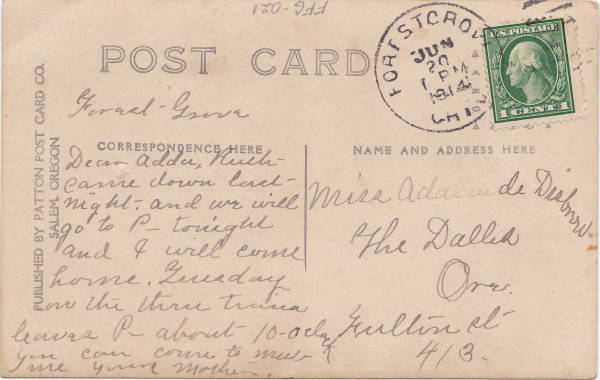 FFG-021
POST CARD
FOREST GROVE
JUN
20
1 PM
1914
U.S. POSTAGE
1 CENT 1
PUBLISHED BY PATTON POST CARD CO.
SALEM, OREGON
CORRESPONDENCE HERE
NAME AND ADDRESS HERE
Forest-Grove
Dear Adda, Ruth
came down last-
night- and we will
go to P- tonight
and I will come
home. Tuesday
on the thru train
leaves P- about 10-oclg
you can come to meet
me your Mother.
Miss
The Dalles
Ore.
Fulton st
413.